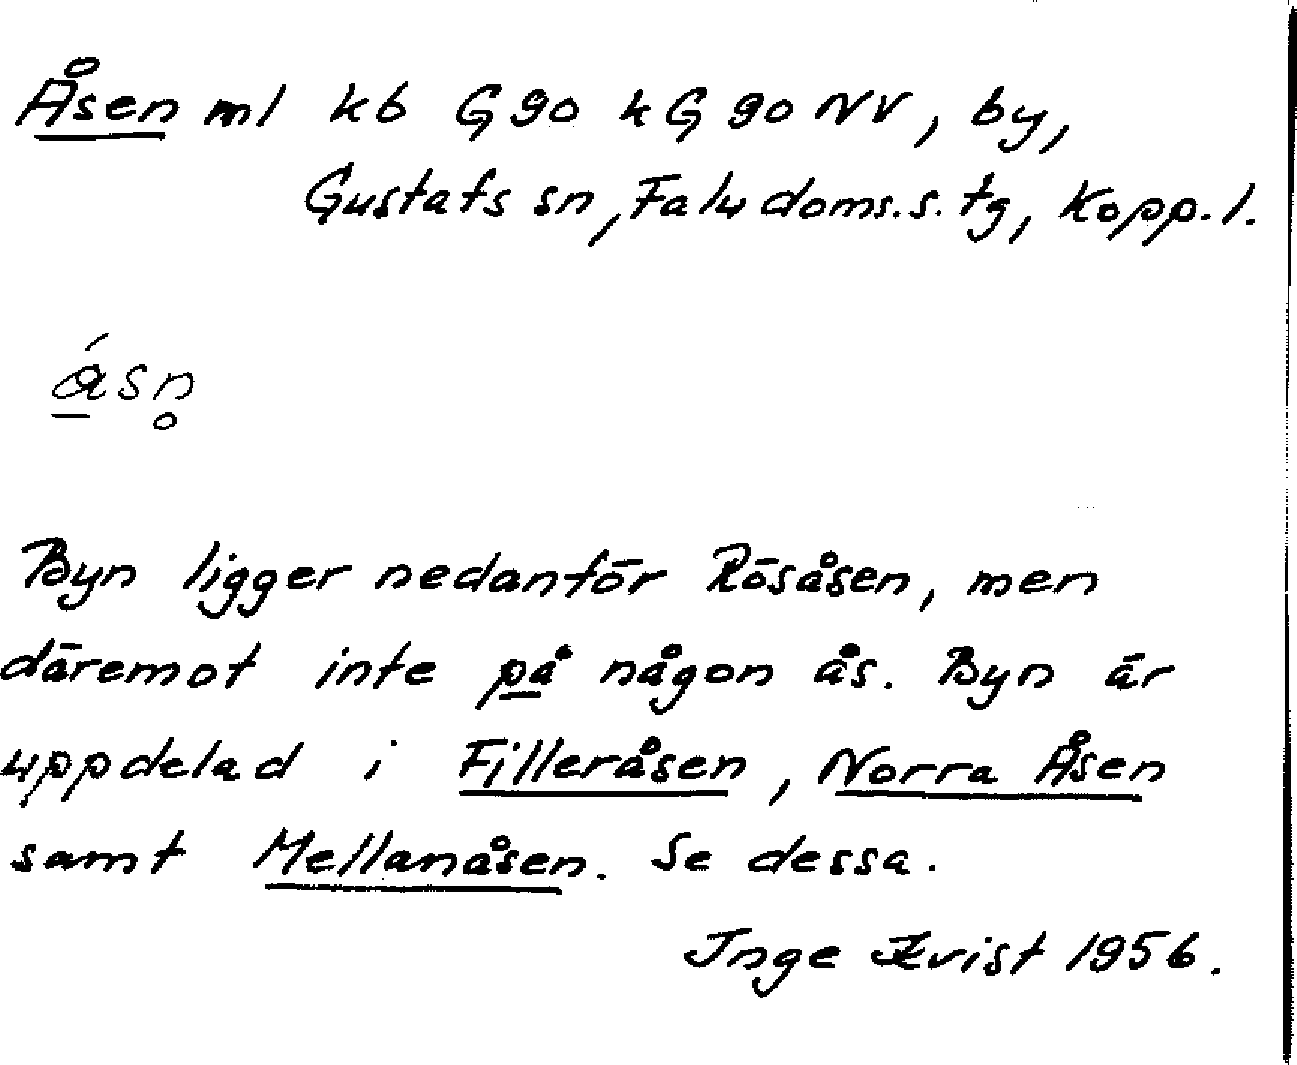 Åsen ml kb G90 kG90NV, by,
Gustafs sn, Falu doms.s. tg, Kopp.l.
ásn̥
Byn ligger nedanför Rösåsen, men
däremot inte på någon ås. Byn är
uppdelad i Filleråsen, Norra Åsen
samt Mellanåsen. Se dessa.
Inge Kvist 1956.